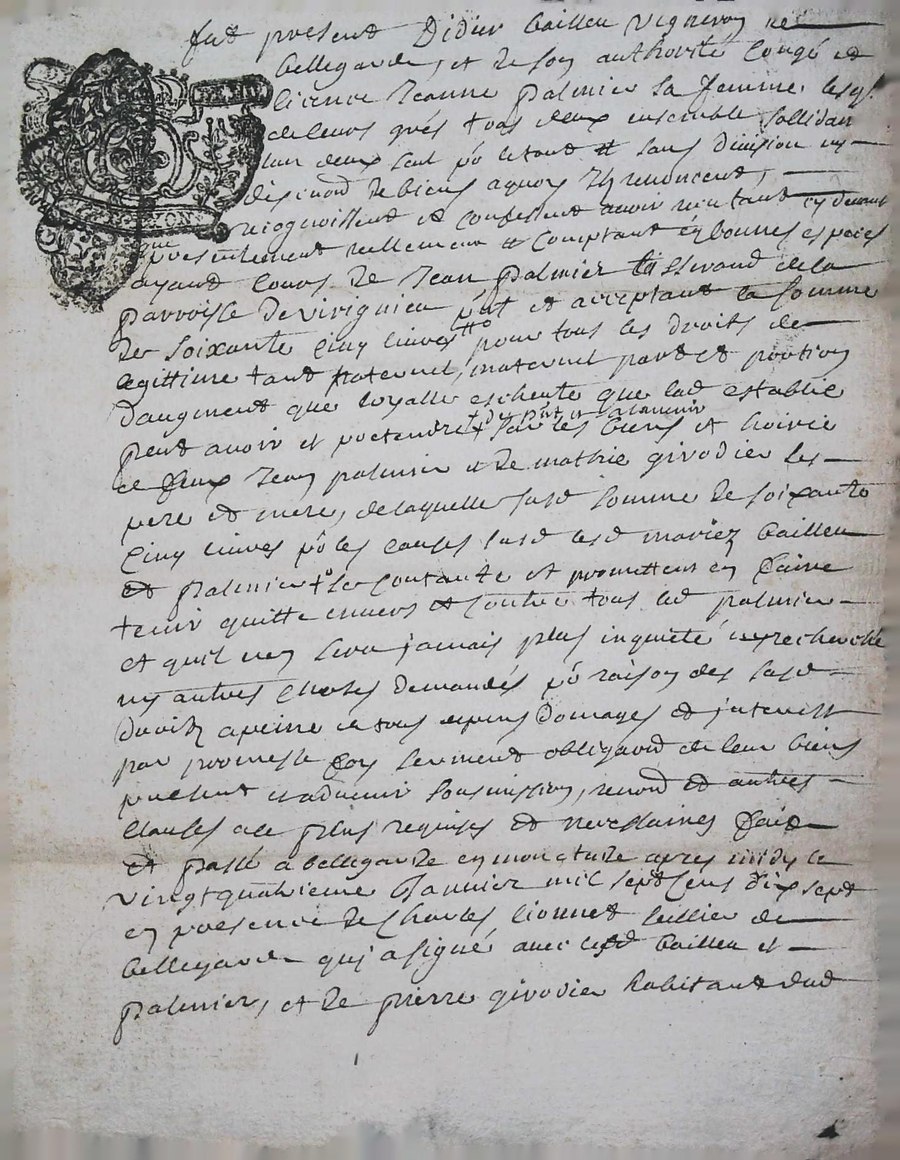 fut present Didier bailleu vigneron de
bellegarde, et de son authorité congé et
licence Jeanne palmier sa femme, lesq.
de leurs grés tous deux ensemble sollidair
lun deux seul po le tout et sans division ny
discution de biens aquoy Ils renoncent,
que recognoissent et confessent avoir
presentement reellement et comptant en bonnes especes
ayant cours de Jean palmier tisserand de la
parroisse de virignieu pnt et acceptant la somme
de soixante cinq livres pour tous les droits de
legittime tant paternel, maternel part et portion
daugment que loyalle escheute que lad establie
peut avoir et pretendre + sur les biens et hoirie
+ du pnt et a ladvenir
de feux Jean palmier et de mathie girodier ses
pere et mere, de laquelle susd somme de soixante
cinq livres po les causes susd lesd mariez bailleu
et palmier se contante et promettent en faire
tenir quitte envers et contre tous led palmier
et quil nen sera jamais plus inquieté ny recherché
ny autres choses demandés po raison des susd
droits a peine de tous depens domages et interest
par promesse foy serment obligaon de leur biens
present et advenir soumission, renond et autres
clauses a ce plus requises et necessaires fait
et passé a bellegarde en mon etude apres midy le
vingt quatrieme Janvier mil sept cens dix sept
en presence de Charles lionnet sellier de
bellegarde qui a signé avec lesd bailleu et
palmier, et de pierre girodier habitant dud